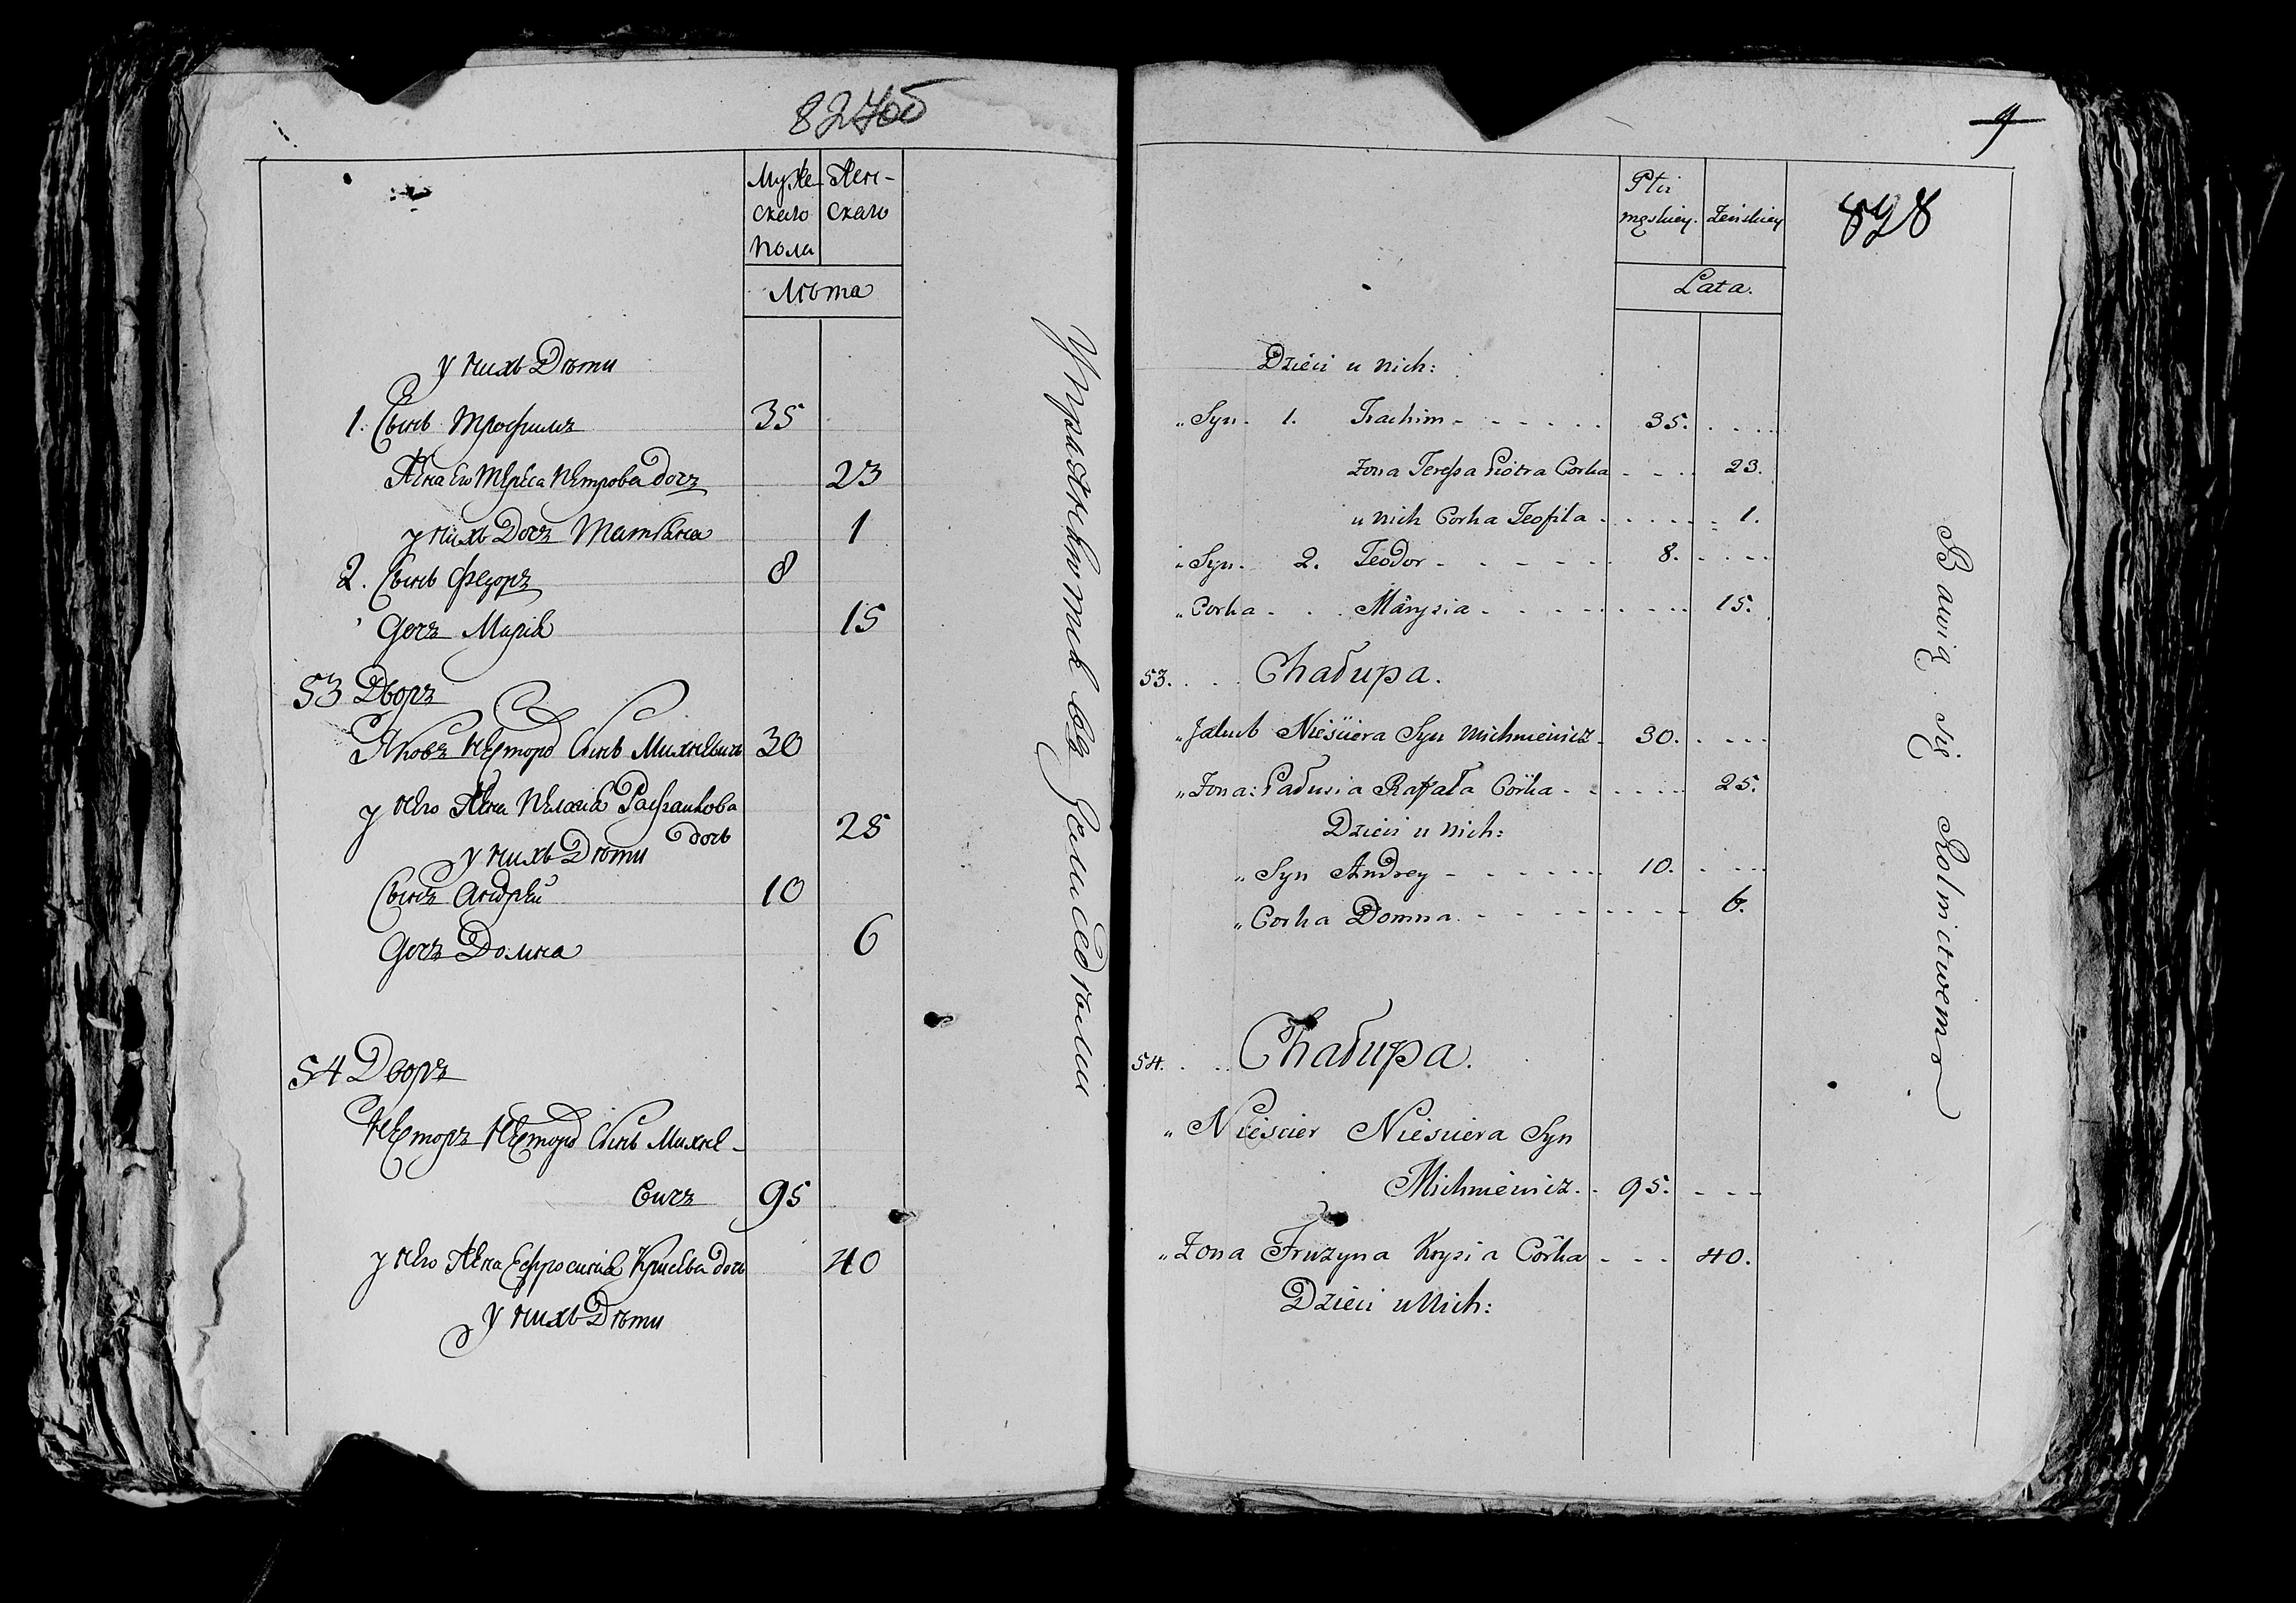 827об
Муже- Жен-
скаго скаго
пола
Лѣта
у нихъ Дѣти
1. Сынъ Трофимъ 35
Жена его Тереса Петрова дочь 23
у нихъ Дочь Татьяна 1
2. Сынъ Федоръ 8
Дочь Марія 15
53 Дворъ
Яковъ Нестора Сынъ Михневичъ 30
у него Жена Пелагія Рафаилова
дочь 25
у нихъ Дѣти
Сынъ Андрей 10
Дочь Домна 6
54 Дворъ
Несторъ Нестора Сынъ Михне-
вичъ 95
у него Жена Ефросинія Крисева дочь 40
у нихъ Дѣти
Упражняются въ Земледѣліи
9
828
Płci
męskiey. żeńskiey
Lata.
Dzieci u nich:
„ Syn. 1. Trachim 35.
żona Teressa Piotra Corka 23.
u nich Corka Teofila 1.
„ Syn. 2. Teodor 8.
„ Corka Marysia 15.
53. Chałupa.
„ Jakub Nieściera Syn Michniewicz 30.
„ Żona: Pałusia Rafała Córka 25.
Dzieci u nich:
„ Syn Andrey 10.
„ Corka Domna. 6.
54. Chałupa.
„ Nieścier Nieściera Syn
Michniewicz. 95.
„ Żona Fruzyna Krysia Córka 40.
Dzieci u Nich:
Bawią się Rolnictwem